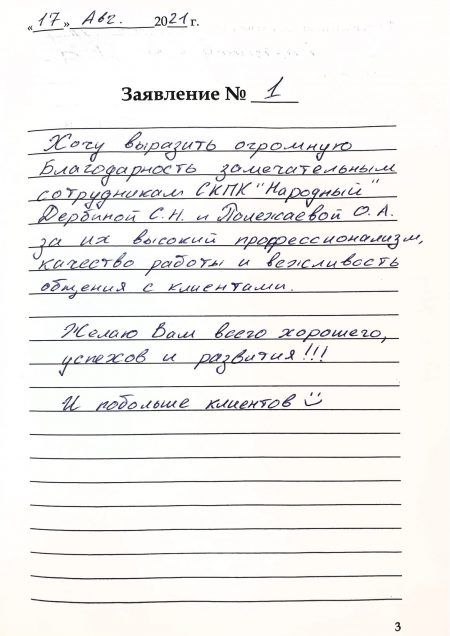 «17» Авг. 2021 г.
Заявление № 1
Хочу выразить огромную
благодарность замечательным
сотрудникам СКПК "Народный"
Дербиной С.Н. и Полежаевой О.А.
за их высокий профессионализм,
качество работы и вежливость
общения с клиентами.
Желаю Вам всего хорошего,
успехов и развития!!!
И побольше клиентов
3